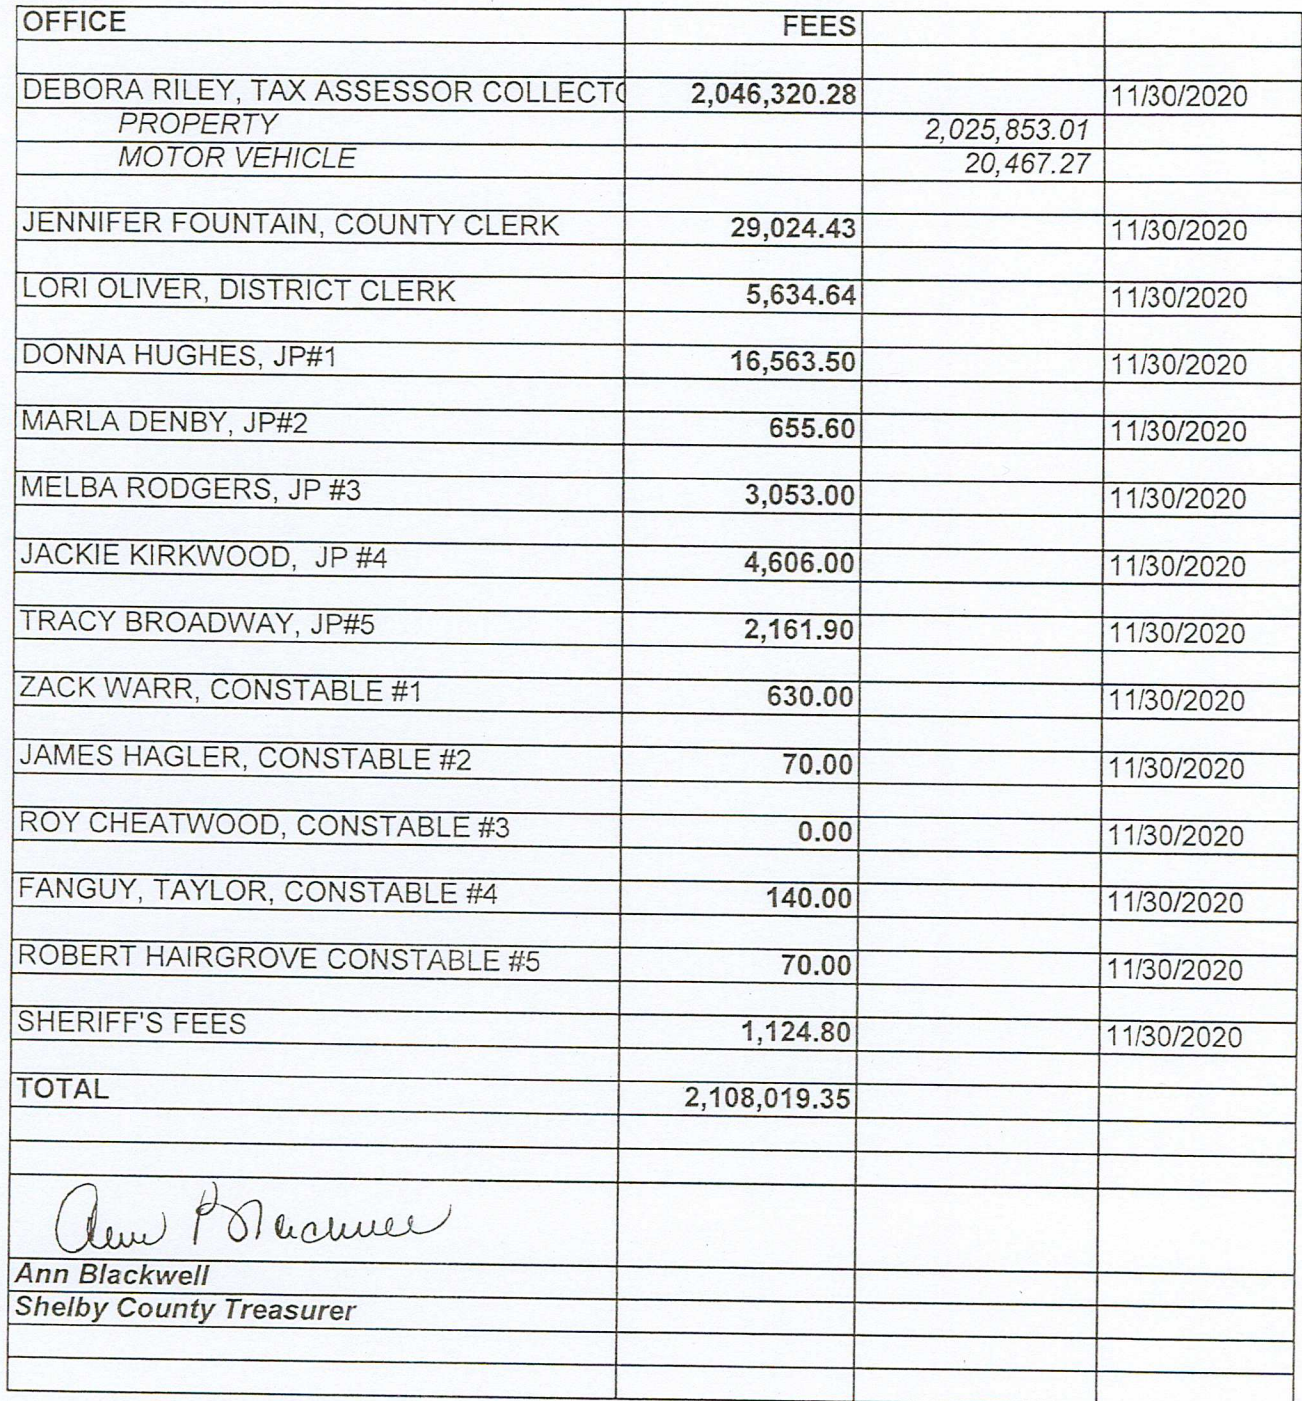 OFFICE FEES
DEBORA RILEY, TAX ASSESSOR COLLECTO 2,046,320.28 11/30/2020
PROPERTY 2,025,853.01
MOTOR VEHICLE 20,467.27
JENNIFER FOUNTAIN, COUNTY CLERK 29,024.43 11/30/2020
LORI OLIVER, DISTRICT CLERK 5,634.64 11/30/2020
DONNA HUGHES, JP#1 16,563.50 11/30/2020
MARLA DENBY, JP#2 655.60 11/30/2020
MELBA RODGERS, JP #3 3,053.00 11/30/2020
JACKIE KIRKWOOD, JP #4 4,606.00 11/30/2020
TRACY BROADWAY, JP#5 2,161.90 11/30/2020
ZACK WARR, CONSTABLE #1 630.00 11/30/2020
JAMES HAGLER, CONSTABLE #2 70.00 11/30/2020
ROY CHEATWOOD, CONSTABLE #3 0.00 11/30/2020
FANGUY, TAYLOR, CONSTABLE #4 140.00 11/30/2020
ROBERT HAIRGROVE CONSTABLE #5 70.00 11/30/2020
SHERIFF'S FEES 1,124.80 11/30/2020
TOTAL 2,108,019.35
Ann Blackwell
Ann Blackwell
Shelby County Treasurer